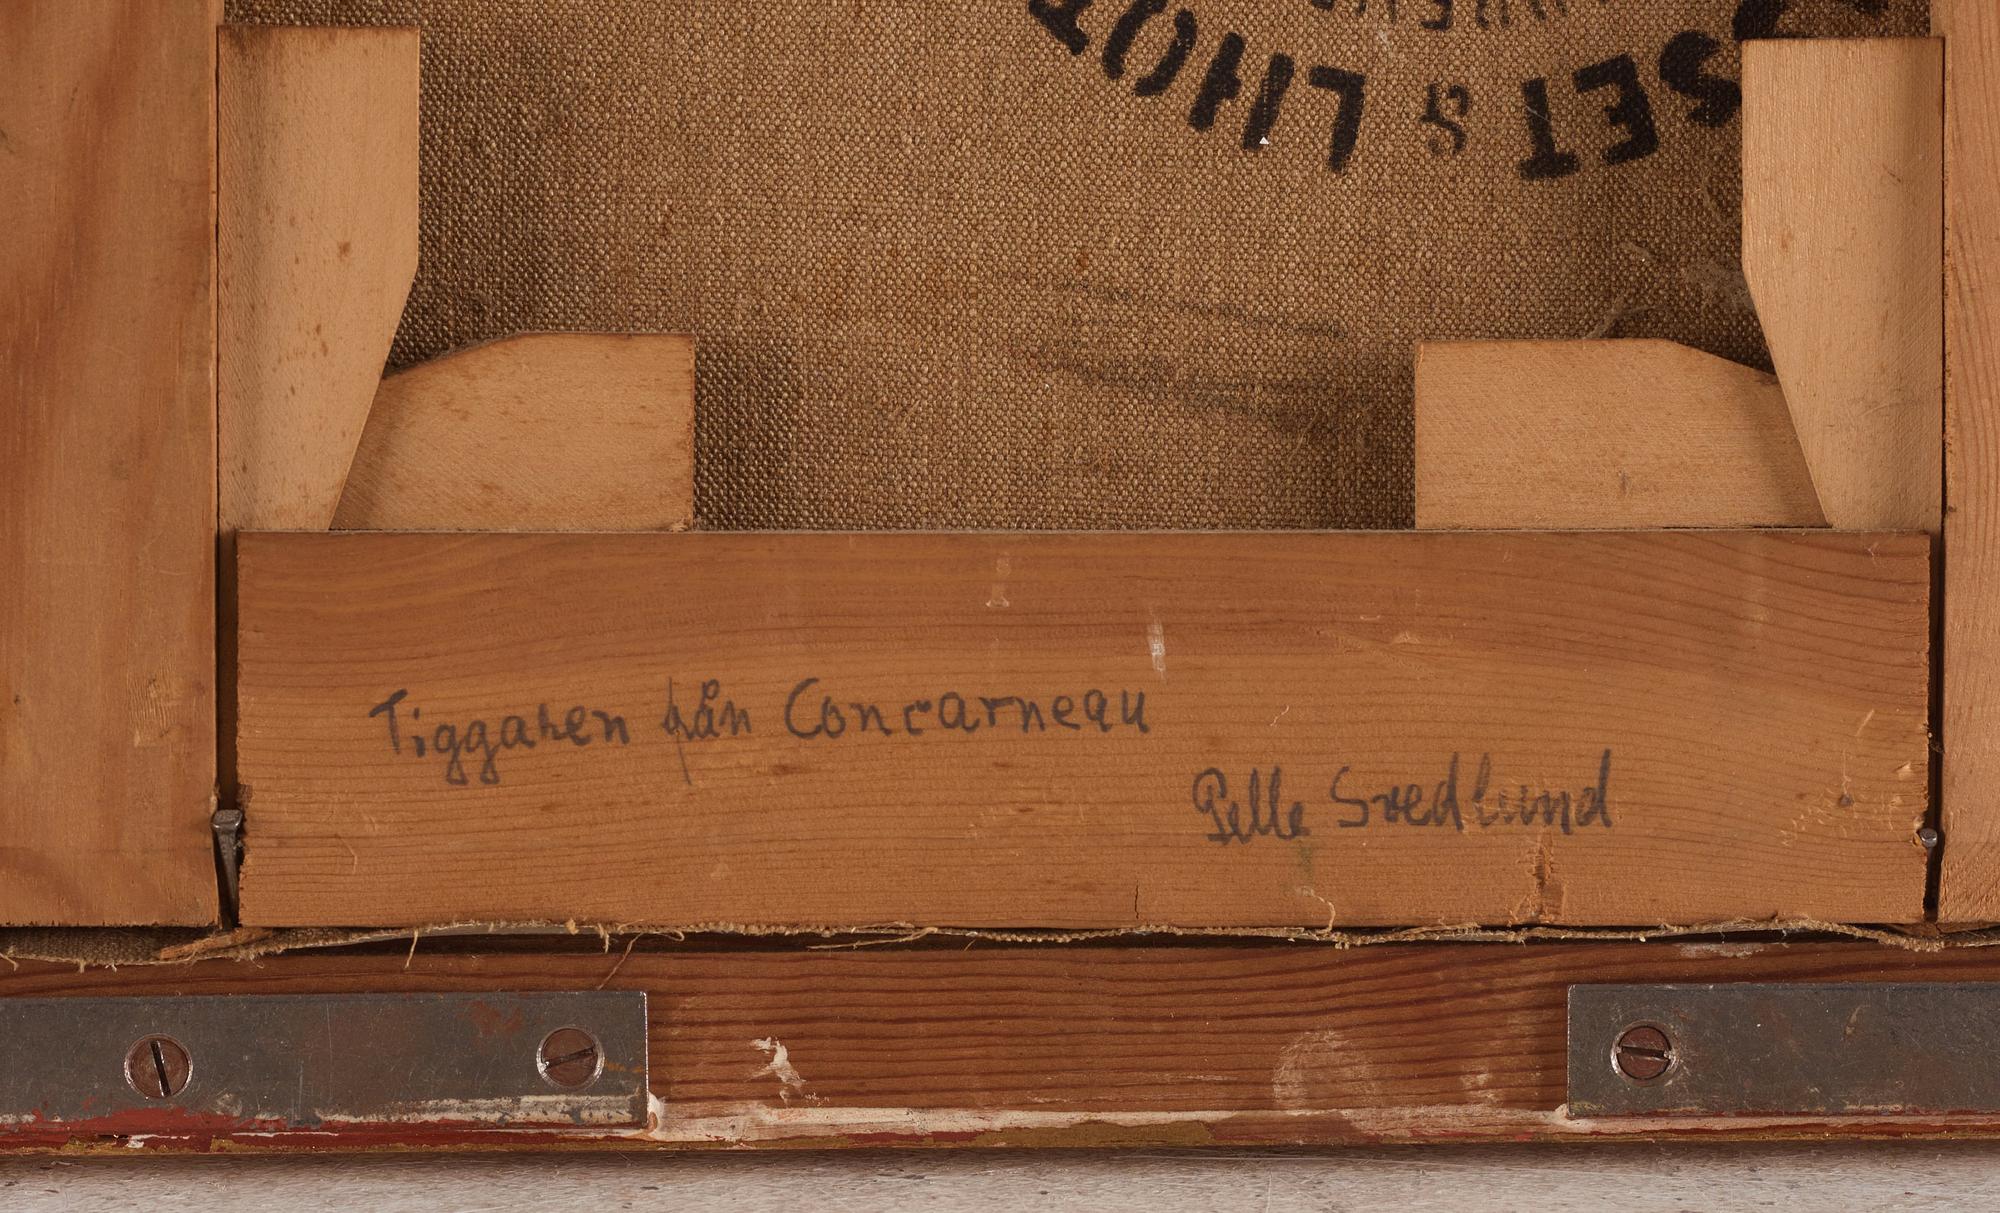 LHOT
& SET
Tiggaren från Concarneau
Pelle Svedlund